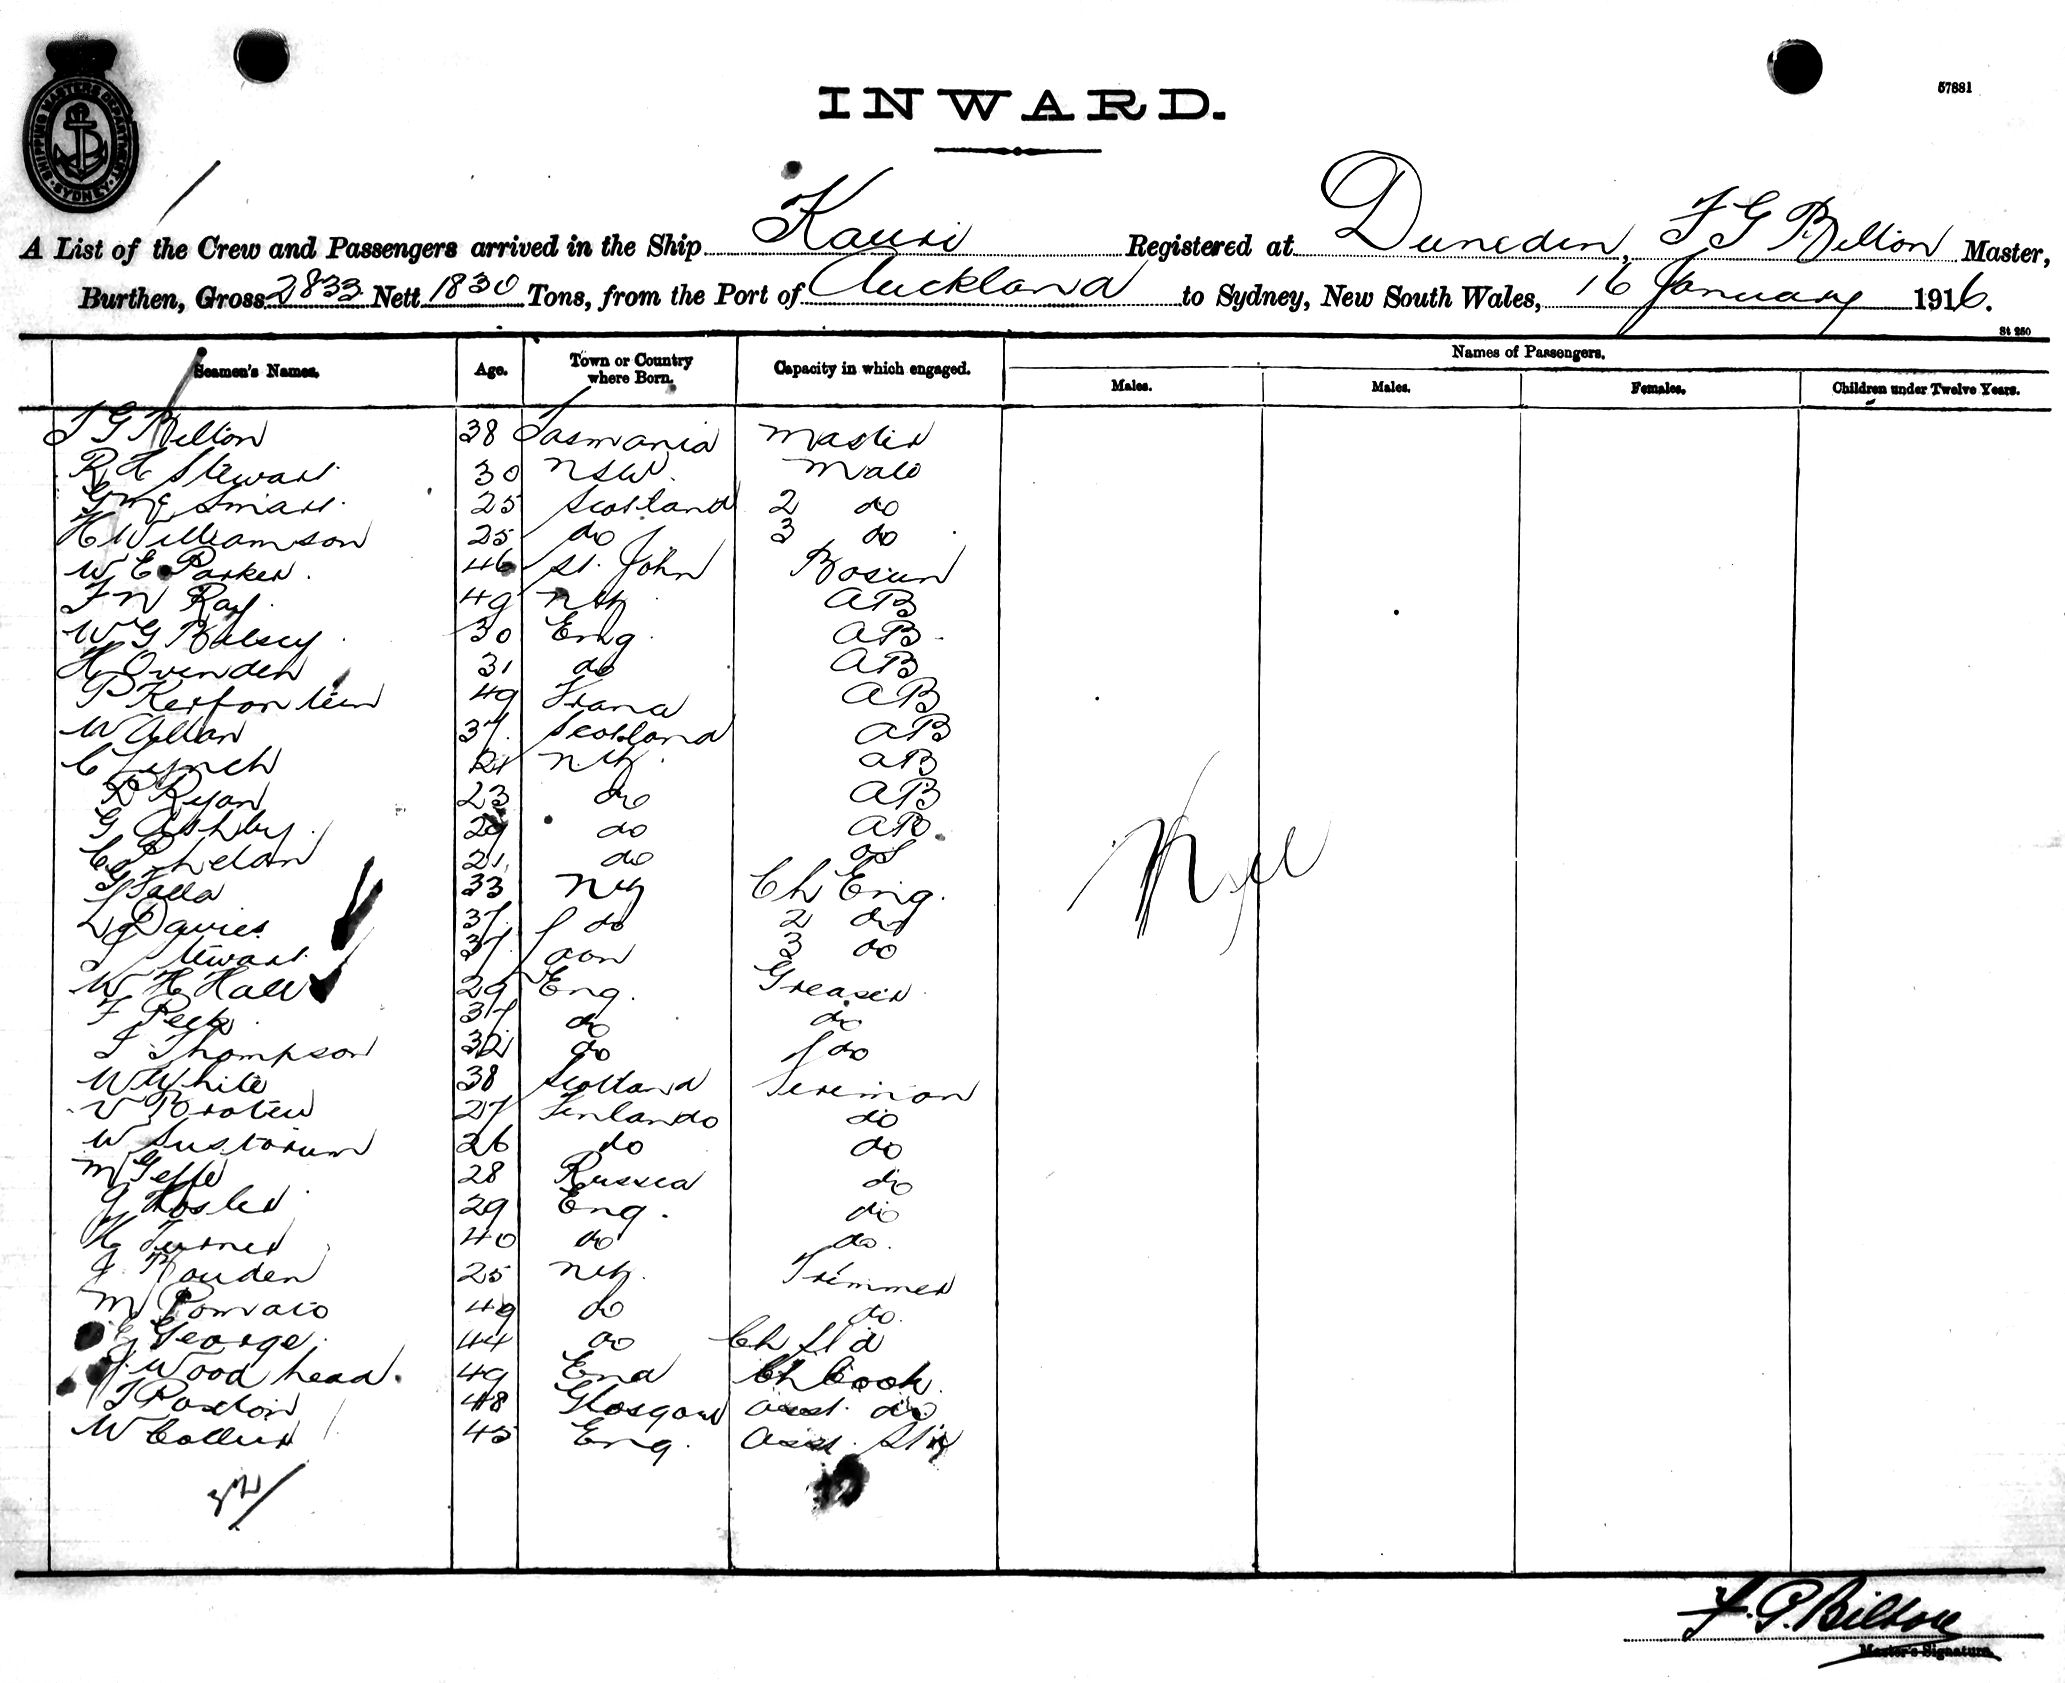 SHIPPING MASTERS DEPARTMENT
SYDNEY
57881
INWARD.
A List of the Crew and Passengers arrived in the Ship Kauri Registered at Dunedin, F G Bilton Master,
Burthen, Gross 2833 Nett 1830 Tons, from the Port of Auckland to Sydney, New South Wales, 16 January 1916.
St 250
Seamen's Names. Age. Town or Country where Born. Capacity in which engaged. Names of Passengers.
Males. Males. Females. Children under Twelve Years.
F G Bilton 38 Tasmania Master
R H Stewart 30 NSW. Mate
G Mc Smart 25 Scotland 2 do
H Williamson 25 do 3 do
W E Parker 46 St. John Bosun
F N Ray 49 NZ AB
W G 30 Eng. AB
H Ovenden 31 do AB
P 49 AB
W Allan 37 Scotland AB
C Lynch 21 NZ AB
R Ryan 23 do AB
G Ashby 29 do AB
C Phelan 21 do OS
Falla 33 NZ Ch Eng.
L Davies 37 do 2 do
J Stewart 37 3 do
W H Hall 29 Eng. Greaser
F Peek 37 do do
T Thompson 32 do do
W White 38 Scotland Fireman
V 27 Finland do
W 26 do do
M 28 Russia do
J 29 Eng. do
H Turner 40 do do
J 25 NZ Trimmer
M 49 do do
G George 44 do Ch Std
J Woodhead 49 Eng Ch Cook
T Paxton 48 Glasgow asst. do
W Collier 45 Eng. asst. Std
Nil
32
F. G. Bilton
Master's Signature.